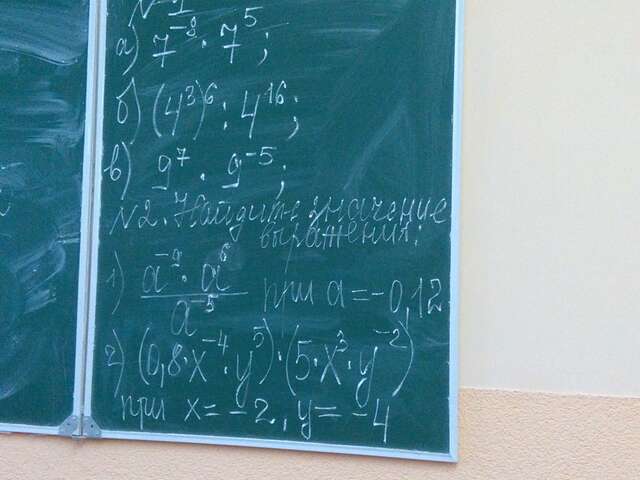 № 1
а) 7⁻⁸ · 7⁵;
б) (4³)⁶ : 4¹⁶;
в) 9⁷ · 9⁻⁵;
№ 2. Найдите значение
выражения:
1) (a⁻⁹ · a⁶)/a⁻⁵ при a = -0,12
2) (0,8 · x⁻⁴ · y⁵) · (5 · x³ · y⁻²)
при x = -2, y = -4